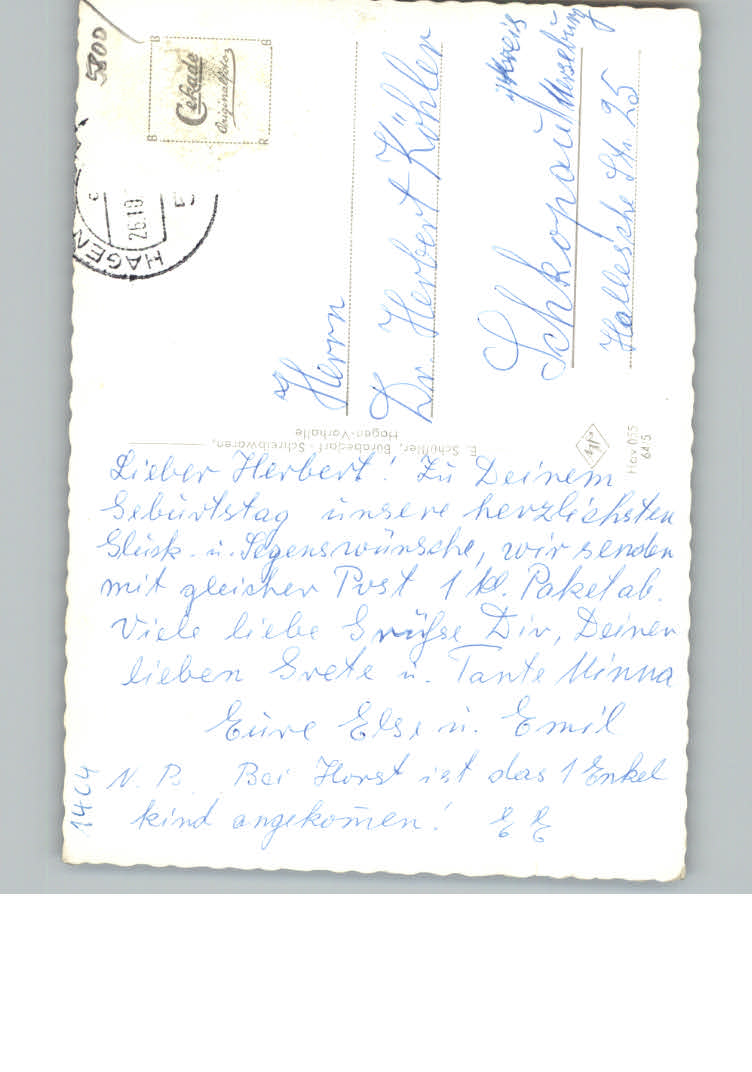 5800
B B
Cekade
Originalfoto
B R
HAGEN
26.10
Herrn
Dr. Herbert Köhler
Schkopau Kreis Merseburg
Hallesche Str. 25
E. Schüffler, Bürobedarf - Schreibwaren,
Hagen-Vorhalle
Hav 055
64/5
Lieber Herbert! Zu Deinem
Geburtstag unsere herzlichsten
Glück- u. Segenswünsche, wir senden
mit gleicher Post 1 kl. Paket ab.
Viele liebe Grüße Dir, Deiner
lieben Grete u. Tante Minna
Eure Else u. Emil
N. B. Bei Horst ist das 1 Enkel
kind angekom̄en! E E